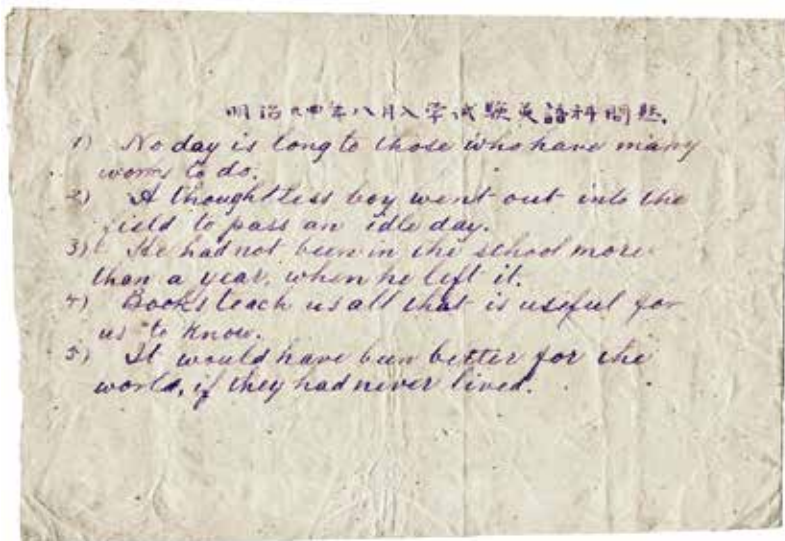 明治 年八月入学試験英語科問題.
1) No day is long to those who have many
works to do.
2) A thoughtless boy went out into the
field to pass an idle day.
3) He had not been in the school more
than a year, when he left it.
4) Books teach us all that is useful for
us to know.
5) It would have been better for the
world, if they had never lived.